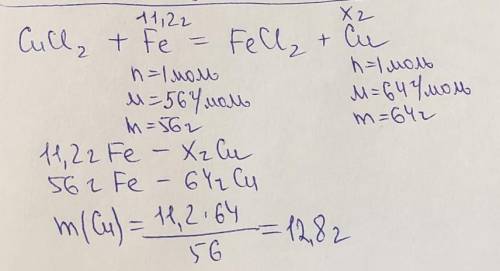 11,2г x г
CuCl₂ + Fe = FeCl₂ + Cu
n=1моль n=1моль
M=56г/моль M=64г/моль
m=56г m=64г
11,2г Fe – xг Cu
56г Fe – 64г Cu
m(Cu) = 11,2·64 / 56 = 12,8г